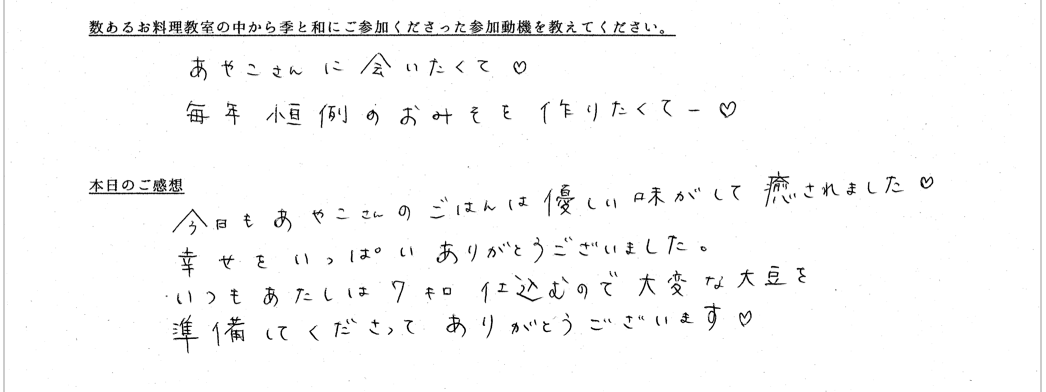 数あるお料理教室の中から季と和にご参加くださった参加動機を教えてください。
あやこさんに会いたくて♡
毎年恒例のおみそを作りたくてー♡
本日のご感想
今日もあやこさんのごはんは優しい味がして癒されました♡
幸せをいっぱいありがとうございました。
いつもあたしは7キロ仕込むので大変な大豆を
準備してくださってありがとうございます♡